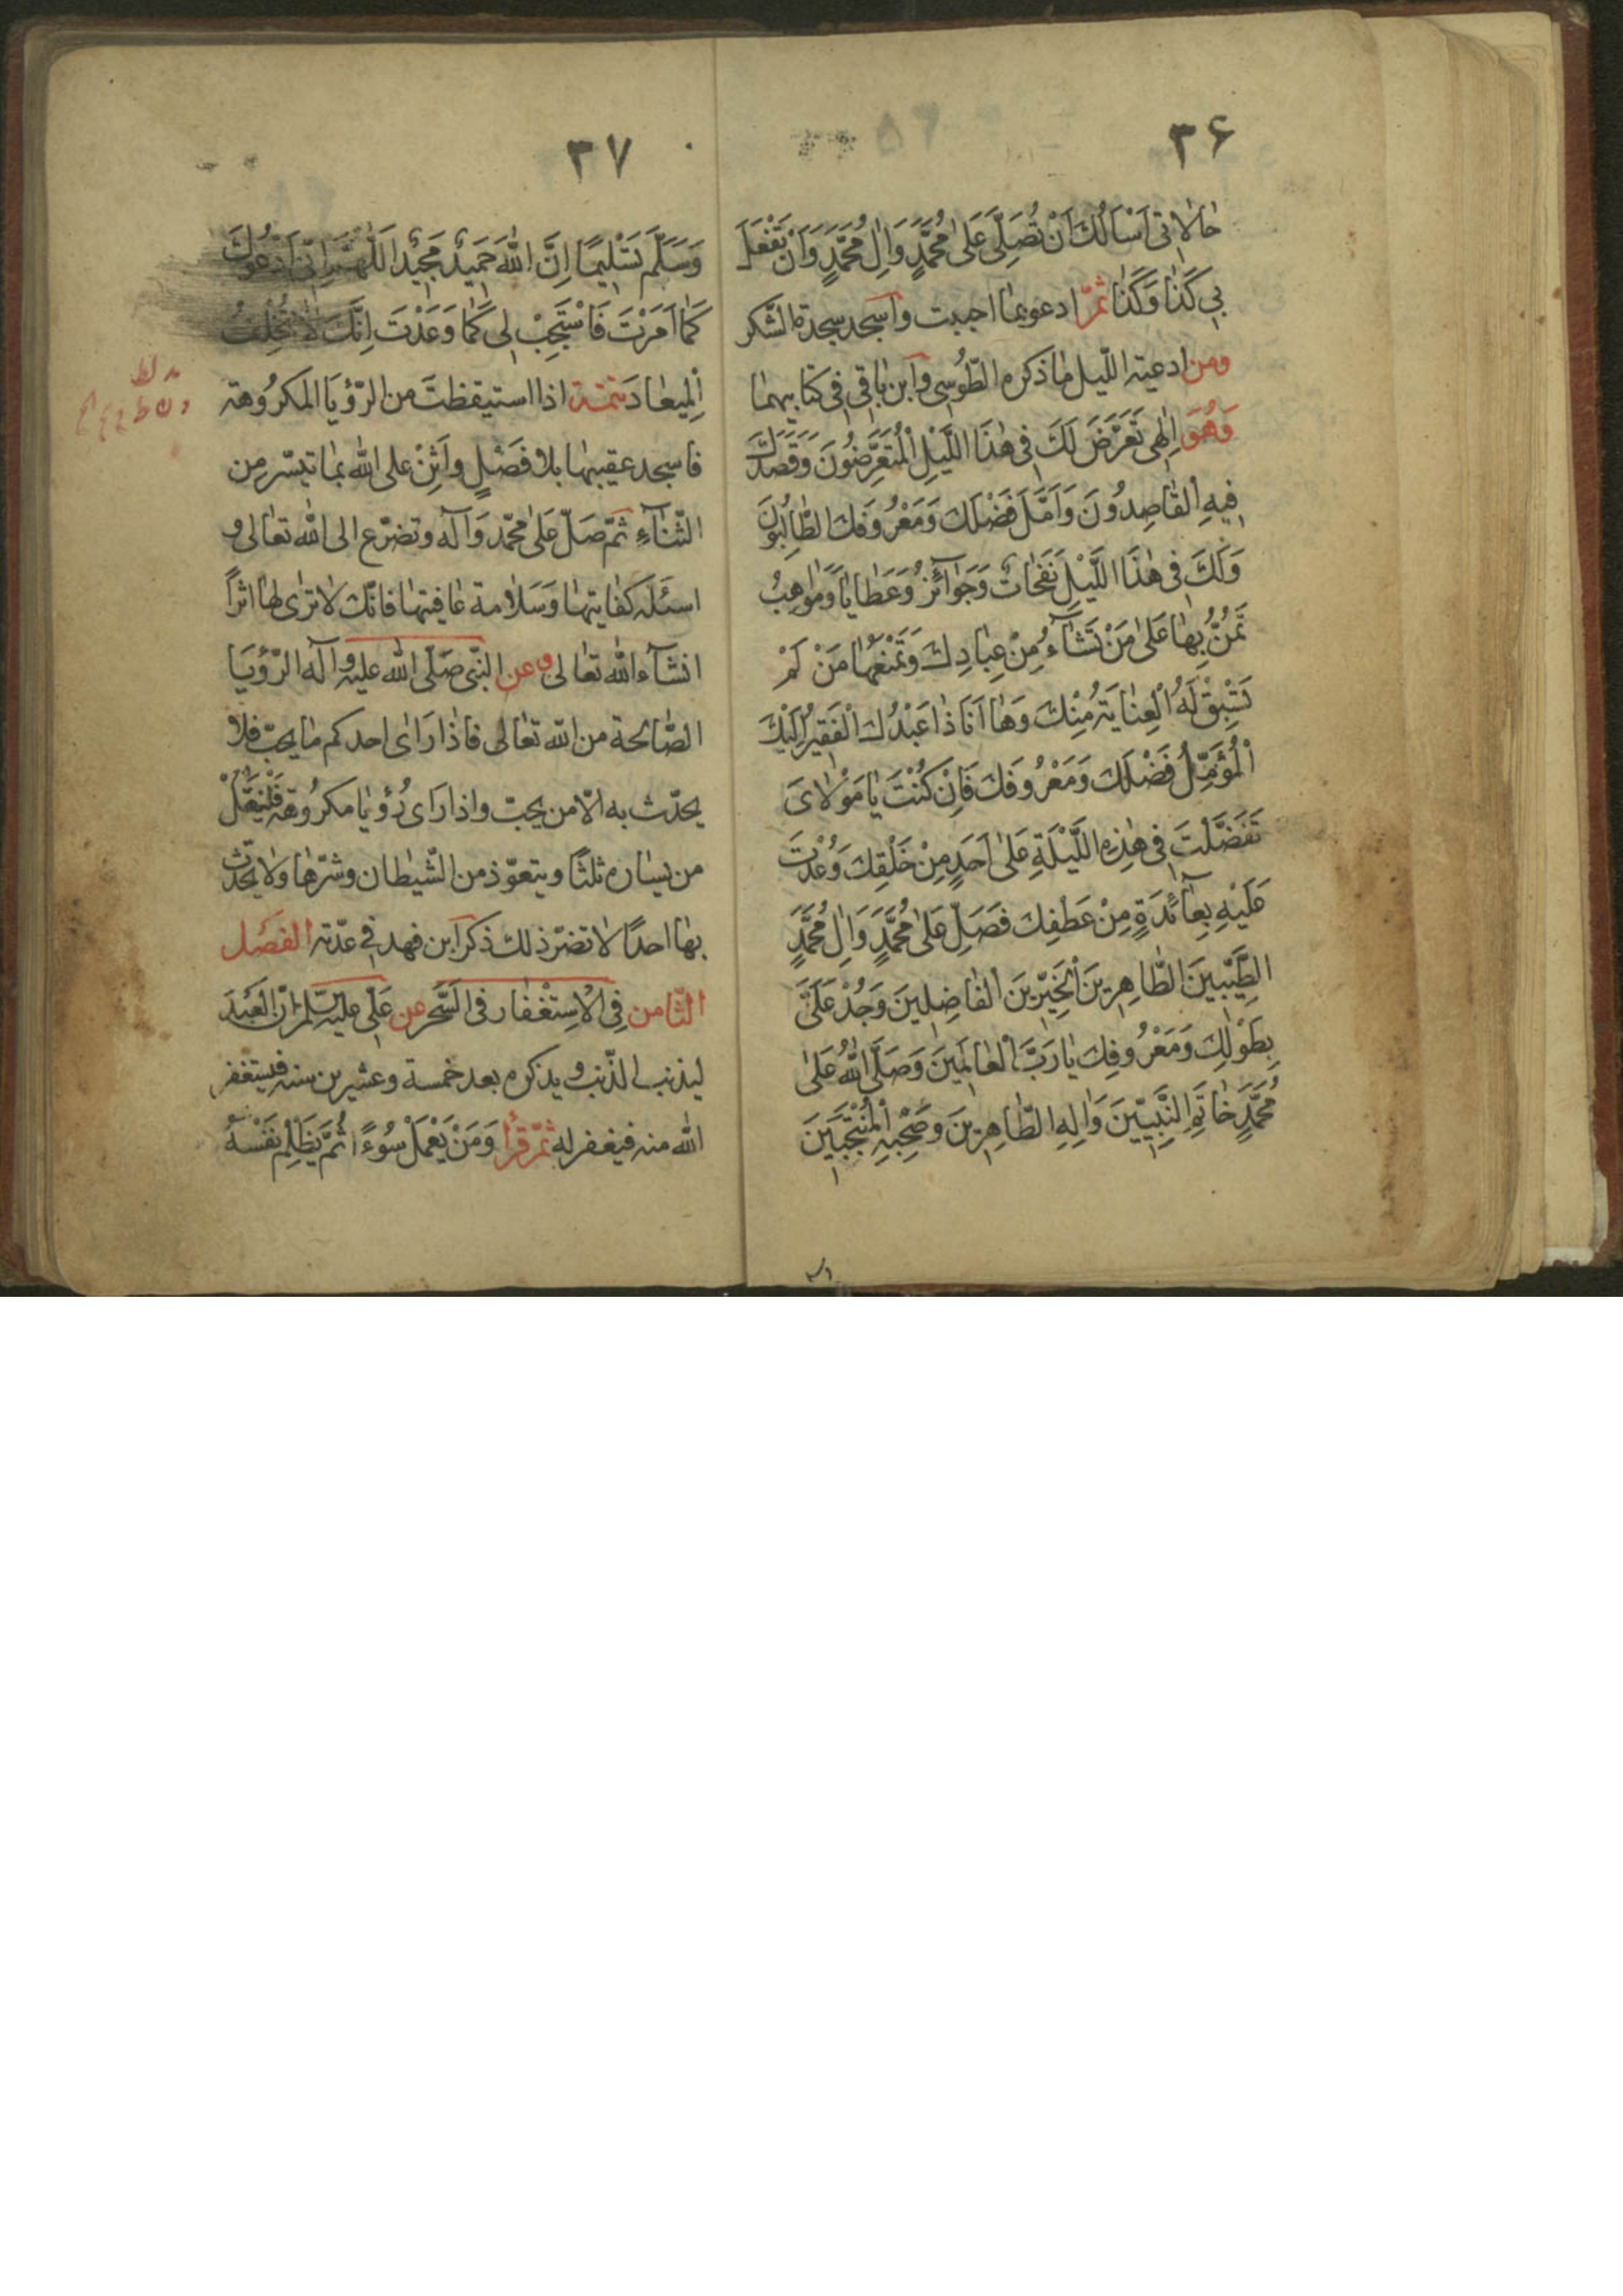 ۳۶
حٰالٰاتي اَسْاَلُكَ اَنْ تُصَلِّيَ عَلىٰ مُحَمَّدٍ وَاٰلِ مُحَمَّدٍ وَاَنْ تَفْعَلَ
بي كَذٰا وَكَذٰا ثمّ ادعو بمٰا احببت واسجد سجدة الشّكر
ومن ادعية اللّيل مٰا ذكره الطّوسي وابن بٰاقي في كتابيهمٰا
وَهُوَ اِلٰهي تَعَرَّضَ لَكَ في هٰذَا اللَّيْلِ الْمُتَعَرِّضُونَ وَقَصَدَكَ
فيهِ الْقٰاصِدُونَ وَاَمَّلَ فَضْلَكَ وَمَعْرُوفَكَ الطّٰالِبُونَ
وَلَكَ في هٰذَا اللَّيْلِ نَفَحٰاتٌ وَجَوٰآئِزُ وَعَطٰايٰا وَمَوٰاهِبُ
تَمُنُّ بِهٰا عَلىٰ مَنْ تَشٰآءُ مِنْ عِبٰادِكَ وَتَمْنَعُهٰا مَنْ لَمْ
تَسْبِقْ لَهُ الْعِنٰايَةُ مِنْكَ وَهٰا اَنَا ذٰا عَبْدُكَ الْفَقيرُ اِلَيْكَ
الْمُؤَمِّلُ فَضْلَكَ وَمَعْرُوفَكَ فَاِنْ كُنْتَ يٰا مَوْلٰايَ
تَفَضَّلْتَ في هٰذِهِ اللَّيْلَةِ عَلىٰ اَحَدٍ مِنْ خَلْقِكَ وَعُدْتَ
عَلَيْهِ بِعٰآئِدَةٍ مِنْ عَطْفِكَ فَصَلِّ عَلىٰ مُحَمَّدٍ وَاٰلِ مُحَمَّدٍ
الطَّيِّبينَ الطّٰاهِرينَ الْخَيِّرينَ الْفٰاضِلينَ وَجُدْ عَلَيَّ
بِطَوْلِكَ وَمَعْرُوفِكَ يٰا رَبَّ الْعٰالَمينَ وَصَلَّى اللّٰهُ عَلىٰ
مُحَمَّدٍ خٰاتَمِ النَّبِيّينَ وَاٰلِهِ الطّٰاهِرينَ وَصَحْبِهِ الْمُنْتَجَبينَ
۳۷
وَسَلَّمَ تَسْليمًا اِنَّ اللّٰهَ حَميدٌ مَجيدٌ اَللّٰهُمَّ اِنّي اَدْعُوكَ
كَمٰا اَمَرْتَ فَاسْتَجِبْ لي كَمٰا وَعَدْتَ اِنَّكَ لٰا تُخْلِفُ
الْميعٰادَ تتمّة اذا استيقظتَ من الرّؤيَا المَكرُوهة
فاسجد عقيبهٰا بلا فَصْلٍ واَثْنِ على اللّٰه بمٰا تيسّر مِن
الثّنٰآءِ ثمّ صَلّ عَلىٰ محمّد وَآله وتضرّع الى اللّٰه تعٰالى و
اسئَله كفٰايتهٰا وَسَلٰامة عٰاقبتهٰا فانّك لٰا ترٰى لهٰا اثراً
انشآء اللّٰه تعٰالى وعن النّبي صَلّى اللّٰه عليه وآله الرّؤيَا
الصّٰالحة من اللّٰه تعٰالى فاذٰا رَاٰى احدكم مٰا يحبّ فلا
يحدّث به الّا من يحبّ واذا رَاى رُؤيٰا مكرُوهة فَلْيَتْفُلْ
من يسٰاره ثلثًا ويتعوّذ من الشّيطٰان وشرّهٰا ولٰا يحدّث
بهٰا احدًا لٰا تضرّ ذلك ذكر ابن فهد في عدّته الفَصْل
الثّامن في الْاِسْتِغْفٰار في السَّحَر عن عَلي عليه السّلم انّ العَبْدَ
ليذنب الذّنب ويذكره بعد خمسة وعشرين سنة فيستغفر
اللّٰه منه فيغفر له ثمّ قرأ وَمَنْ يَعْمَلْ سُوءً ا ثُمَّ يَظْلِمْ نَفْسَهُ